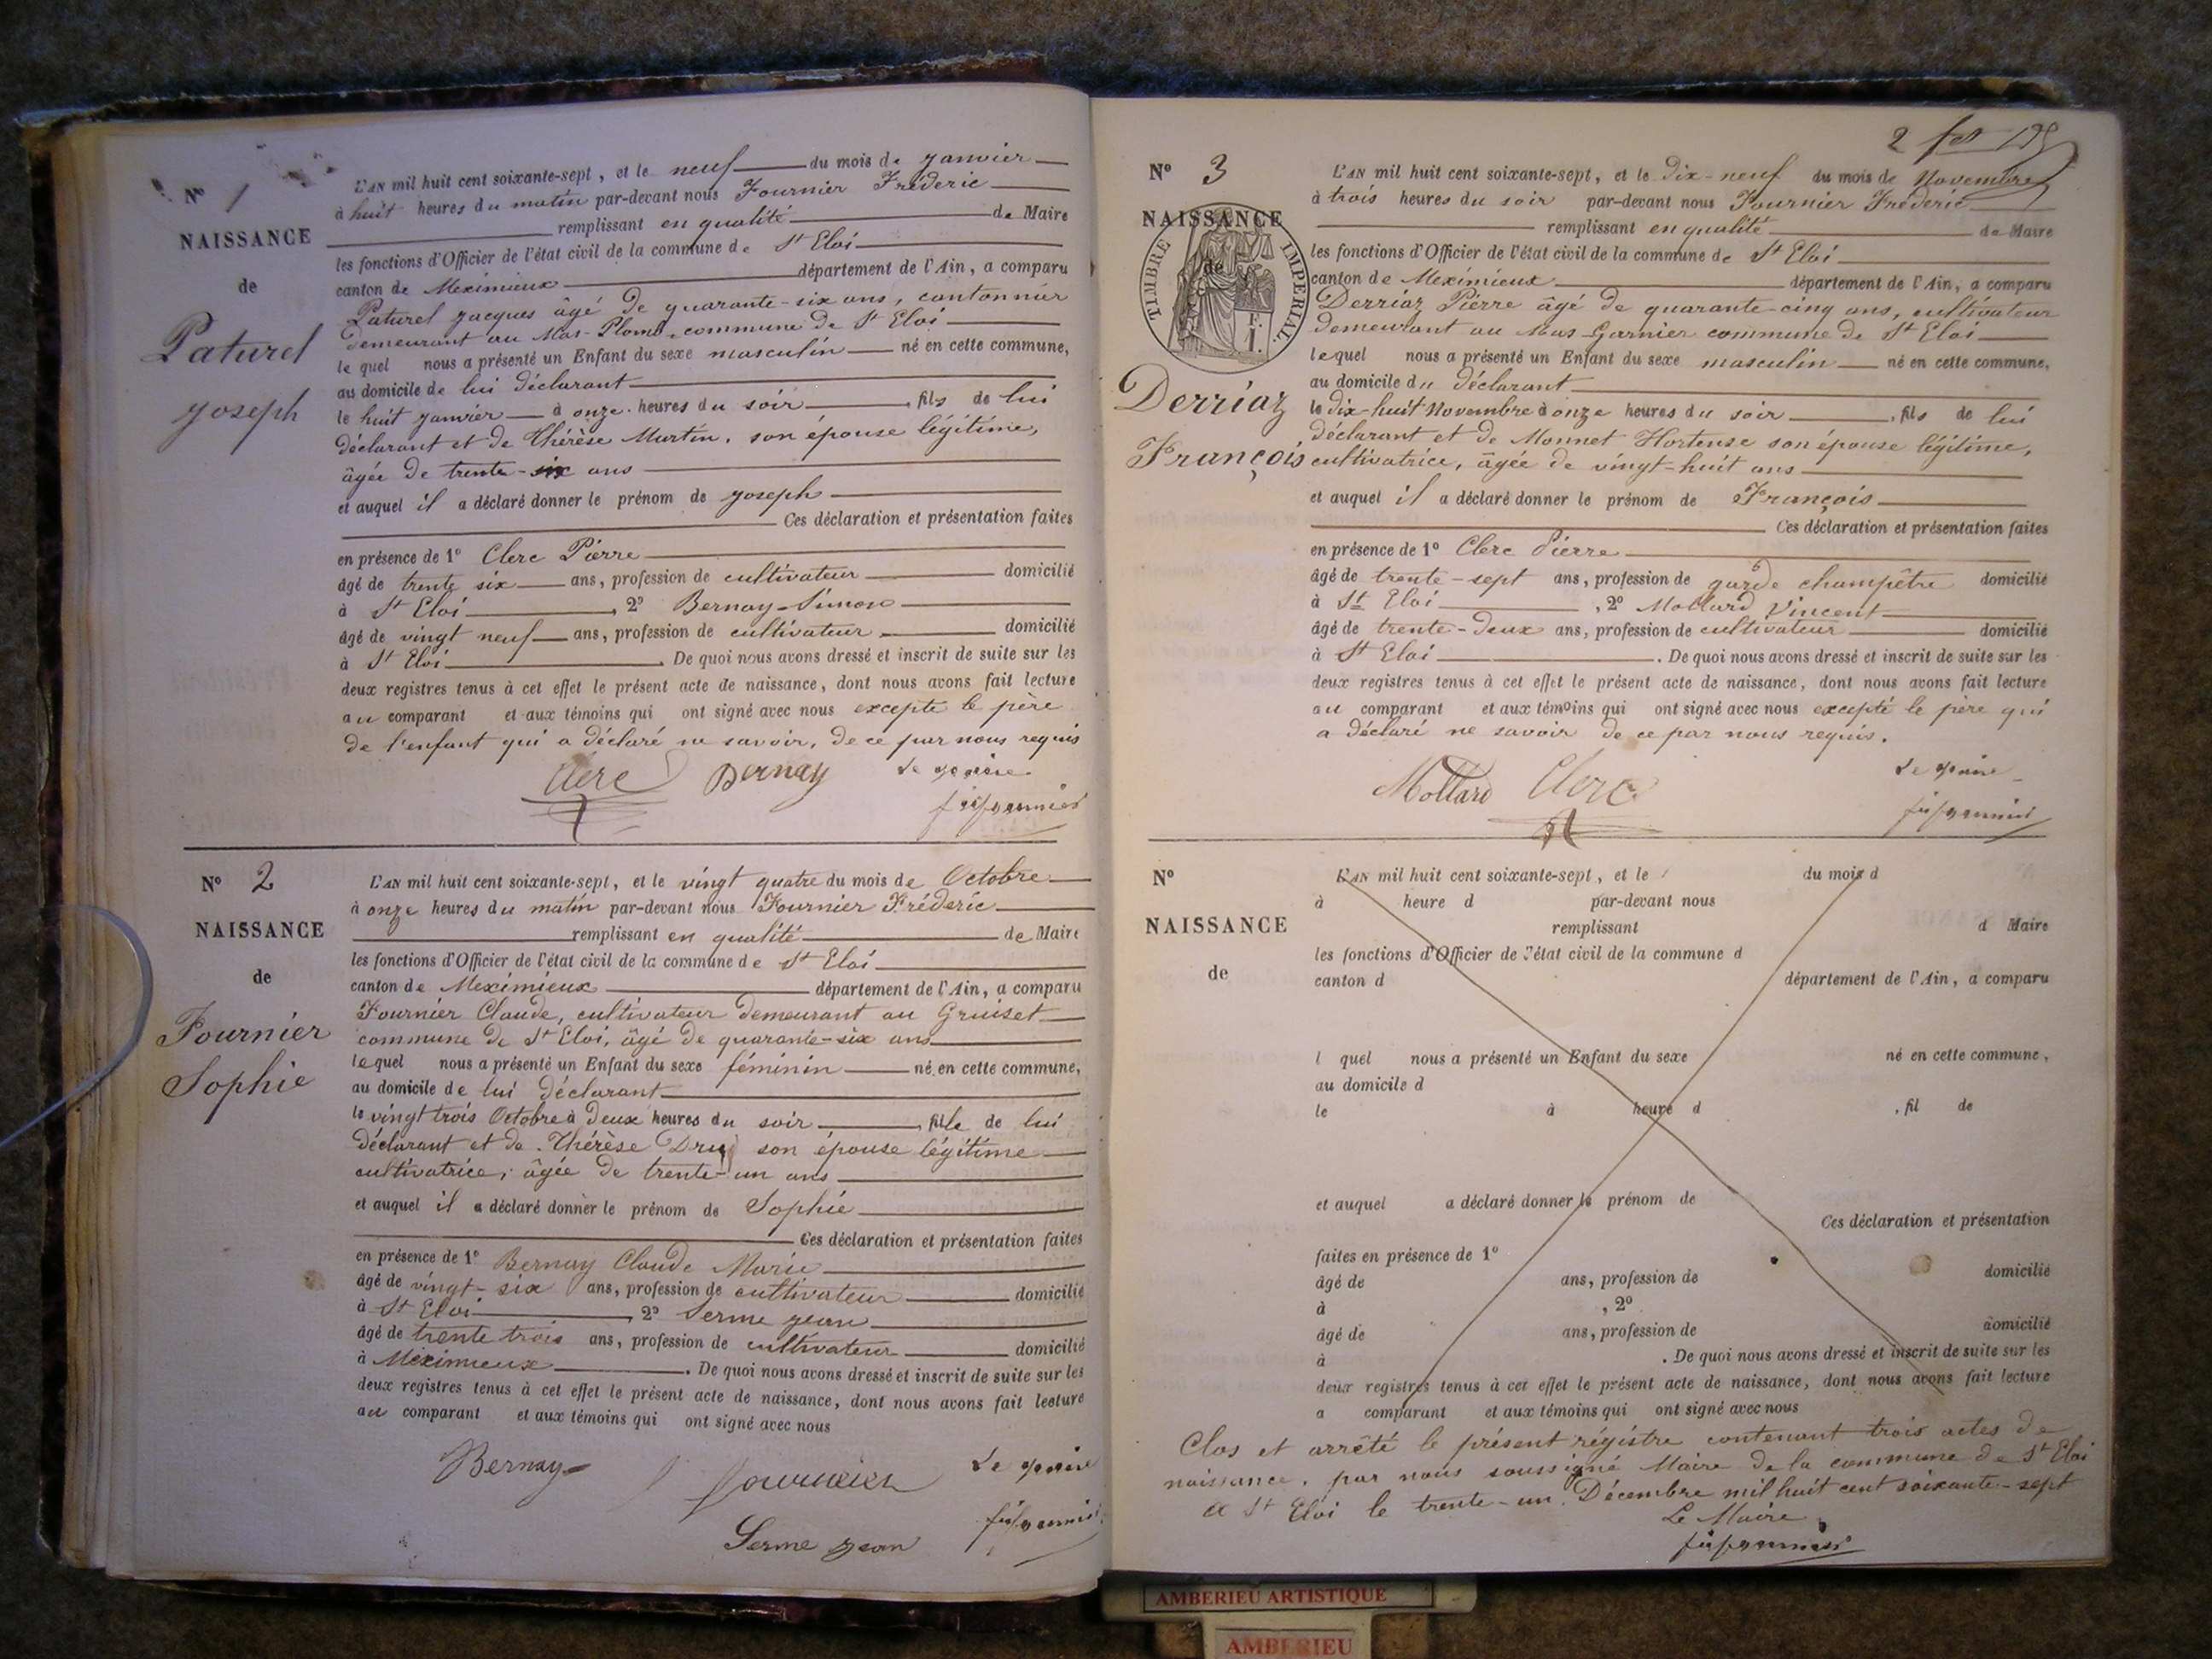 N° 1
NAISSANCE
de
Paturel
Joseph
L'AN mil huit cent soixante-sept, et le neuf du mois de Janvier
à huit heures du matin par-devant nous Fournier Fréderic
remplissant en qualité de Maire
les fonctions d'Officier de l'état civil de la commune de St Eloi
canton de Meximieux département de l'Ain, a comparu
Paturel Jacques âgé de quarante-six ans, cantonnier
demeurant au Mas-Plomb, commune de St Eloi
lequel nous a présenté un Enfant du sexe masculin né en cette commune,
au domicile de lui déclarant
le huit Janvier à onze heures du soir, fils de lui
déclarant et de Thérèse Martin, son épouse légitime,
âgée de trente-six ans
et auquel il a déclaré donner le prénom de Joseph
Ces déclaration et présentation faites
en présence de 1° Clerc Pierre
âgé de trente six ans, profession de cultivateur domicilié
à St Eloi, 2° Bernay Simon
âgé de vingt neuf ans, profession de cultivateur domicilié
à St Eloi. De quoi nous avons dressé et inscrit de suite sur les
deux registres tenus à cet effet le présent acte de naissance, dont nous avons fait lecture
au comparant et aux témoins qui ont signé avec nous excepté le père
de l'enfant qui a déclaré ne savoir, de ce par nous requis
Clerc Bernay Le Maire
N° 2
NAISSANCE
de
Fournier
Sophie
L'AN mil huit cent soixante-sept, et le vingt quatre du mois de Octobre
à onze heures du matin par-devant nous Fournier Fréderic
remplissant en qualité de Maire
les fonctions d'Officier de l'état civil de la commune de St Eloi
canton de Meximieux département de l'Ain, a comparu
Fournier Claude, cultivateur demeurant au Gruiset
commune de St Eloi, âgé de quarante-six ans
lequel nous a présenté un Enfant du sexe féminin né en cette commune,
au domicile de lui déclarant
le vingt trois Octobre à deux heures du soir, fille de lui
déclarant et de Thérèse son épouse légitime
cultivatrice, âgée de trente-un ans
et auquel il a déclaré donner le prénom de Sophie
Ces déclaration et présentation faites
en présence de 1° Bernay Claude Marie
âgé de vingt-six ans, profession de cultivateur domicilié
à St Eloi, 2° Serme Jean
âgé de trente trois ans, profession de cultivateur domicilié
à Meximieux. De quoi nous avons dressé et inscrit de suite sur les
deux registres tenus à cet effet le présent acte de naissance, dont nous avons fait lecture
au comparant et aux témoins qui ont signé avec nous
Bernay Fournier Le Maire
Serme Jean
N° 3
NAISSANCE
de
TIMBRE IMPERIAL
F.
1.
Derriaz
François
L'AN mil huit cent soixante-sept, et le Dix-neuf du mois de Novembre
à trois heures du soir par-devant nous Fournier Fréderic
remplissant en qualité de Maire
les fonctions d'Officier de l'état civil de la commune de St Eloi
canton de Meximieux département de l'Ain, a comparu
Derriaz Pierre âgé de quarante-cinq ans, cultivateur
demeurant au Mas-Garnier commune de St Eloi
lequel nous a présenté un Enfant du sexe masculin né en cette commune,
au domicile du déclarant
le dix-huit Novembre à onze heures du soir, fils de lui
déclarant et de Monnet Hortense son épouse légitime,
cultivatrice, âgée de vingt-huit ans
et auquel il a déclaré donner le prénom de François
Ces déclaration et présentation faites
en présence de 1° Clerc Pierre
âgé de trente-sept ans, profession de garde champêtre domicilié
à St Eloi, 2° Mollard Vincent
âgé de trente-deux ans, profession de cultivateur domicilié
à St Eloi. De quoi nous avons dressé et inscrit de suite sur les
deux registres tenus à cet effet le présent acte de naissance, dont nous avons fait lecture
au comparant et aux témoins qui ont signé avec nous excepté le père qui
a déclaré ne savoir de ce par nous requis.
Mollard Clerc Le Maire
N°
NAISSANCE
de
L'AN mil huit cent soixante-sept, et le du mois d
à heure d par-devant nous
remplissant d Maire
les fonctions d'Officier de l'état civil de la commune d
canton d département de l'Ain, a comparu
l quel nous a présenté un Enfant du sexe né en cette commune,
au domicile d
le à heure d , fil de
et auquel a déclaré donner le prénom de
Ces déclaration et présentation
faites en présence de 1°
âgé de ans, profession de domicilié
à , 2°
âgé de ans, profession de domicilié
à . De quoi nous avons dressé et inscrit de suite sur les
deux registres tenus à cet effet le présent acte de naissance, dont nous avons fait lecture
a comparant et aux témoins qui ont signé avec nous
Clos et arrêté le présent régistre contenant trois actes de
naissance, par nous soussigné Maire de la commune de St Eloi
a St Eloi le trente-un Décembre mil huit cent soixante-sept
Le Maire
AMBERIEU ARTISTIQUE
AMBERIEU